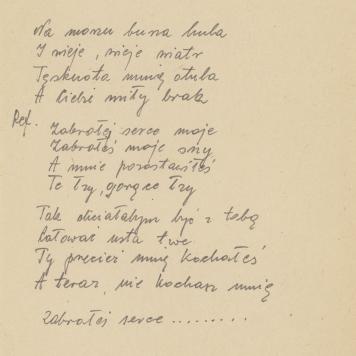 Na morzu burza huba
I wieje, wieje wiatr
Tęsknota mnię otula
A Ciebi miły brak
Ref. Zabrałeś serce moje
Zabrałeś moje sny
A mnie pozostawiłeś
Te łzy, gorące łzy
Tak chciałabym być z tobą
Całować usta twe
Ty przecież mnię kochałeś
A teraz, nie kochasz mnię
Zabrałeś serce .........